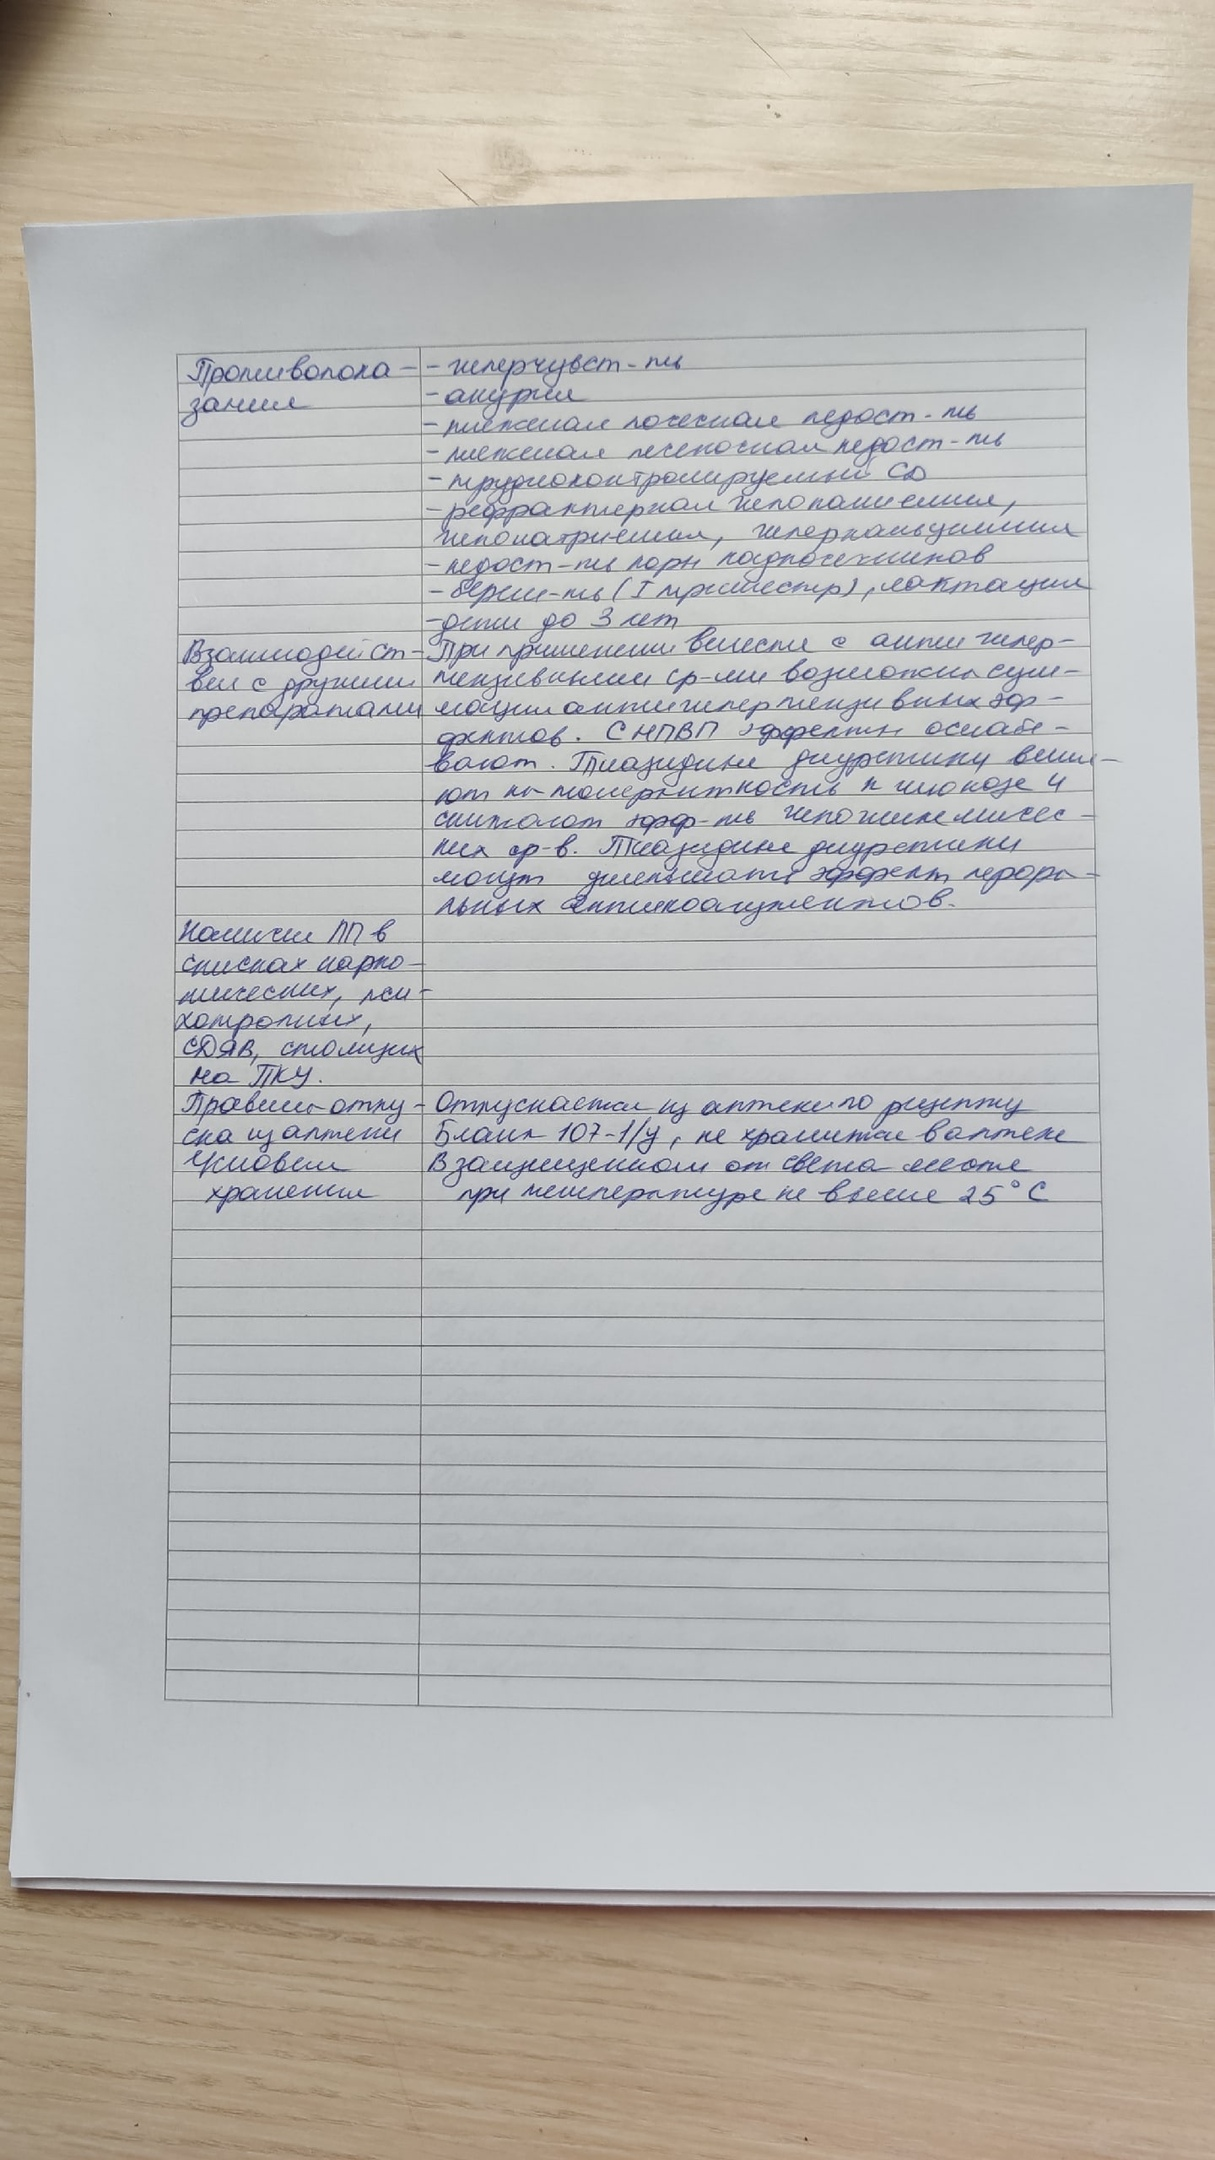 Противопока-
зания
- гиперчувст-ть
- анурия
- тяжелая почечная недост-ть
- тяжелая печеночная недост-ть
- трудноконтролируемый СД
- рефрактерная гипокалиемия,
гипонатриемия, гиперкальциемия
- недост-ть коры надпочечников
- берем-ть (I триместр), лактация
- дети до 3 лет
Взаимодейст-
вия с другими
препаратами
При применении вместе с антигипер-
тензивными ср-ми возможны сум-
мации антигипертензивных эф-
фектов. С НПВП эффекты ослабе-
вают. Тиазидные диуретики влия-
ют на толерантность к глюкозе и
снижают эфф-ть гипогликемичес-
ких ср-в. Тиазидные диуретики
могут уменьшать эффект перора-
льных антикоагулянтов.
Наличие ЛП в
списках нарко-
тических, пси-
хотропных,
СДЯВ, стоящих
на ПКУ.
Правила отпу-
ска из аптеки
Отпускается из аптеки по рецепту
Бланк 107-1/у, не хранится в аптеке
Условия
хранения
В защищенном от света месте
при температуре не выше 25°С